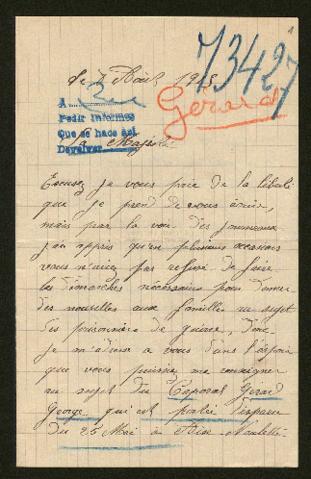 73427
le 7 Août 1915
Gérard
A
Pedir informes
Que se hace así
Devolver
Sa Majesté
Excusez je vous prie de la liberté
que je prend de vous écrire,
mais par la voi des journeaux
j'ai appris qu'en plusieurs occasions
vous n'aviez pas refusé de faire
les démarches nécessaires pour donner
des nouvelles aux familles au sujet
des prisonniers de guerre, donc
je m'adresse a vous dans l'espoir
que vous puissiez me renseigner
au sujet du Caporal Gérard
George qui est porté disparu
du 26 Mai à Aix-Noulette